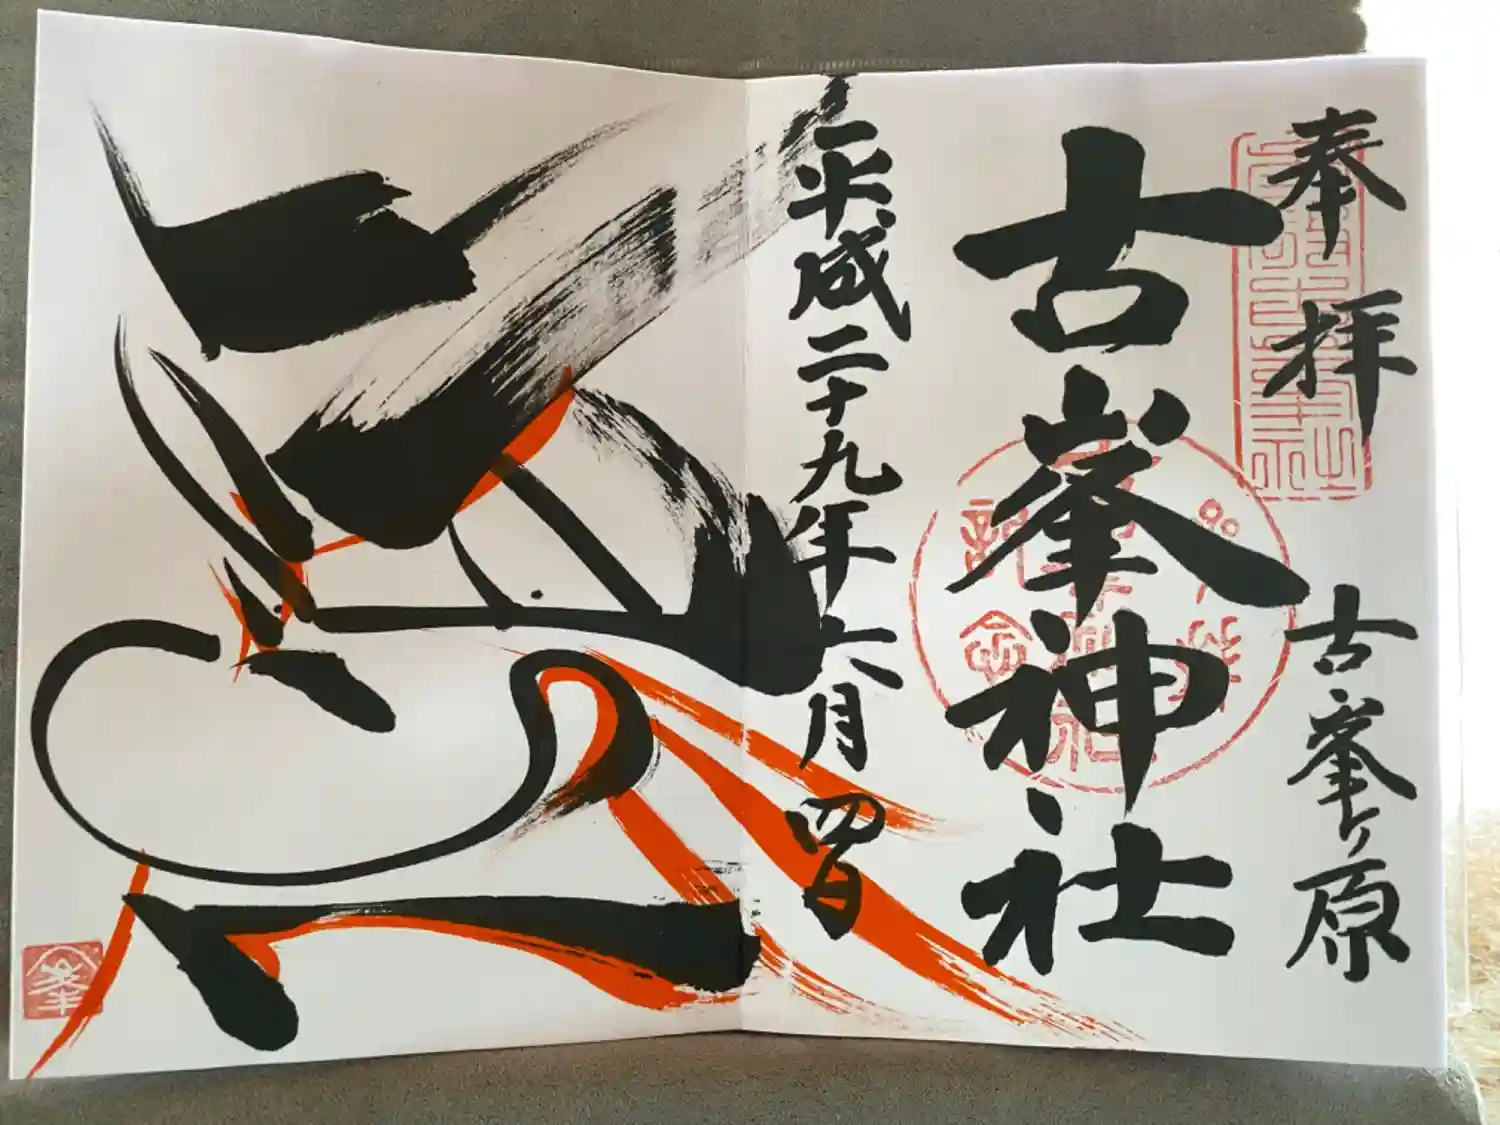 奉拝 古峯ヶ原
古峯神社
平成二十九年六月四日
峯